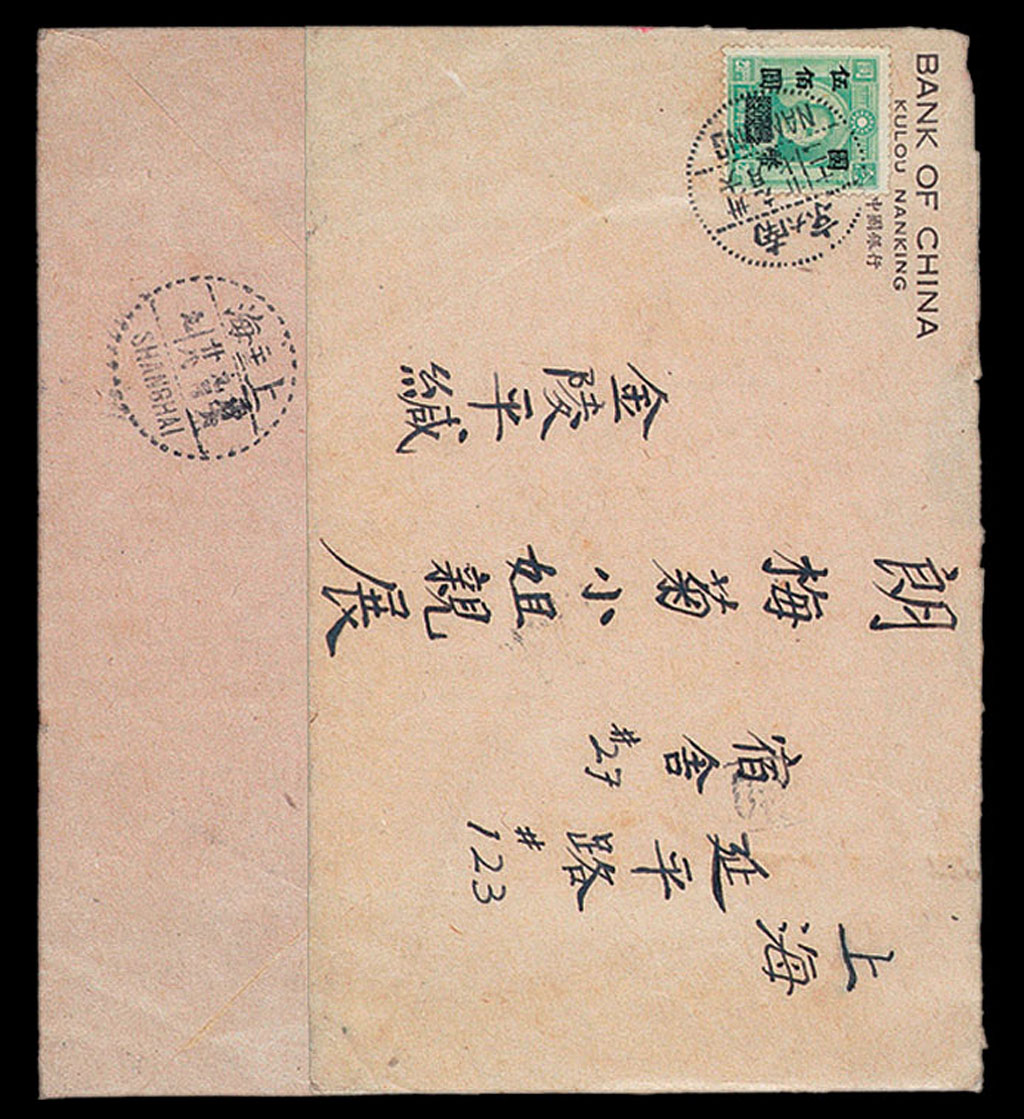 BANK OF CHINA
KULOU NANKING
中國銀行
伍佰圓
國幣
南京
上海
延平路
#123
宿舍
#27
朗梅菊小姐親展
金陵平緘
上海
SHANGHAI